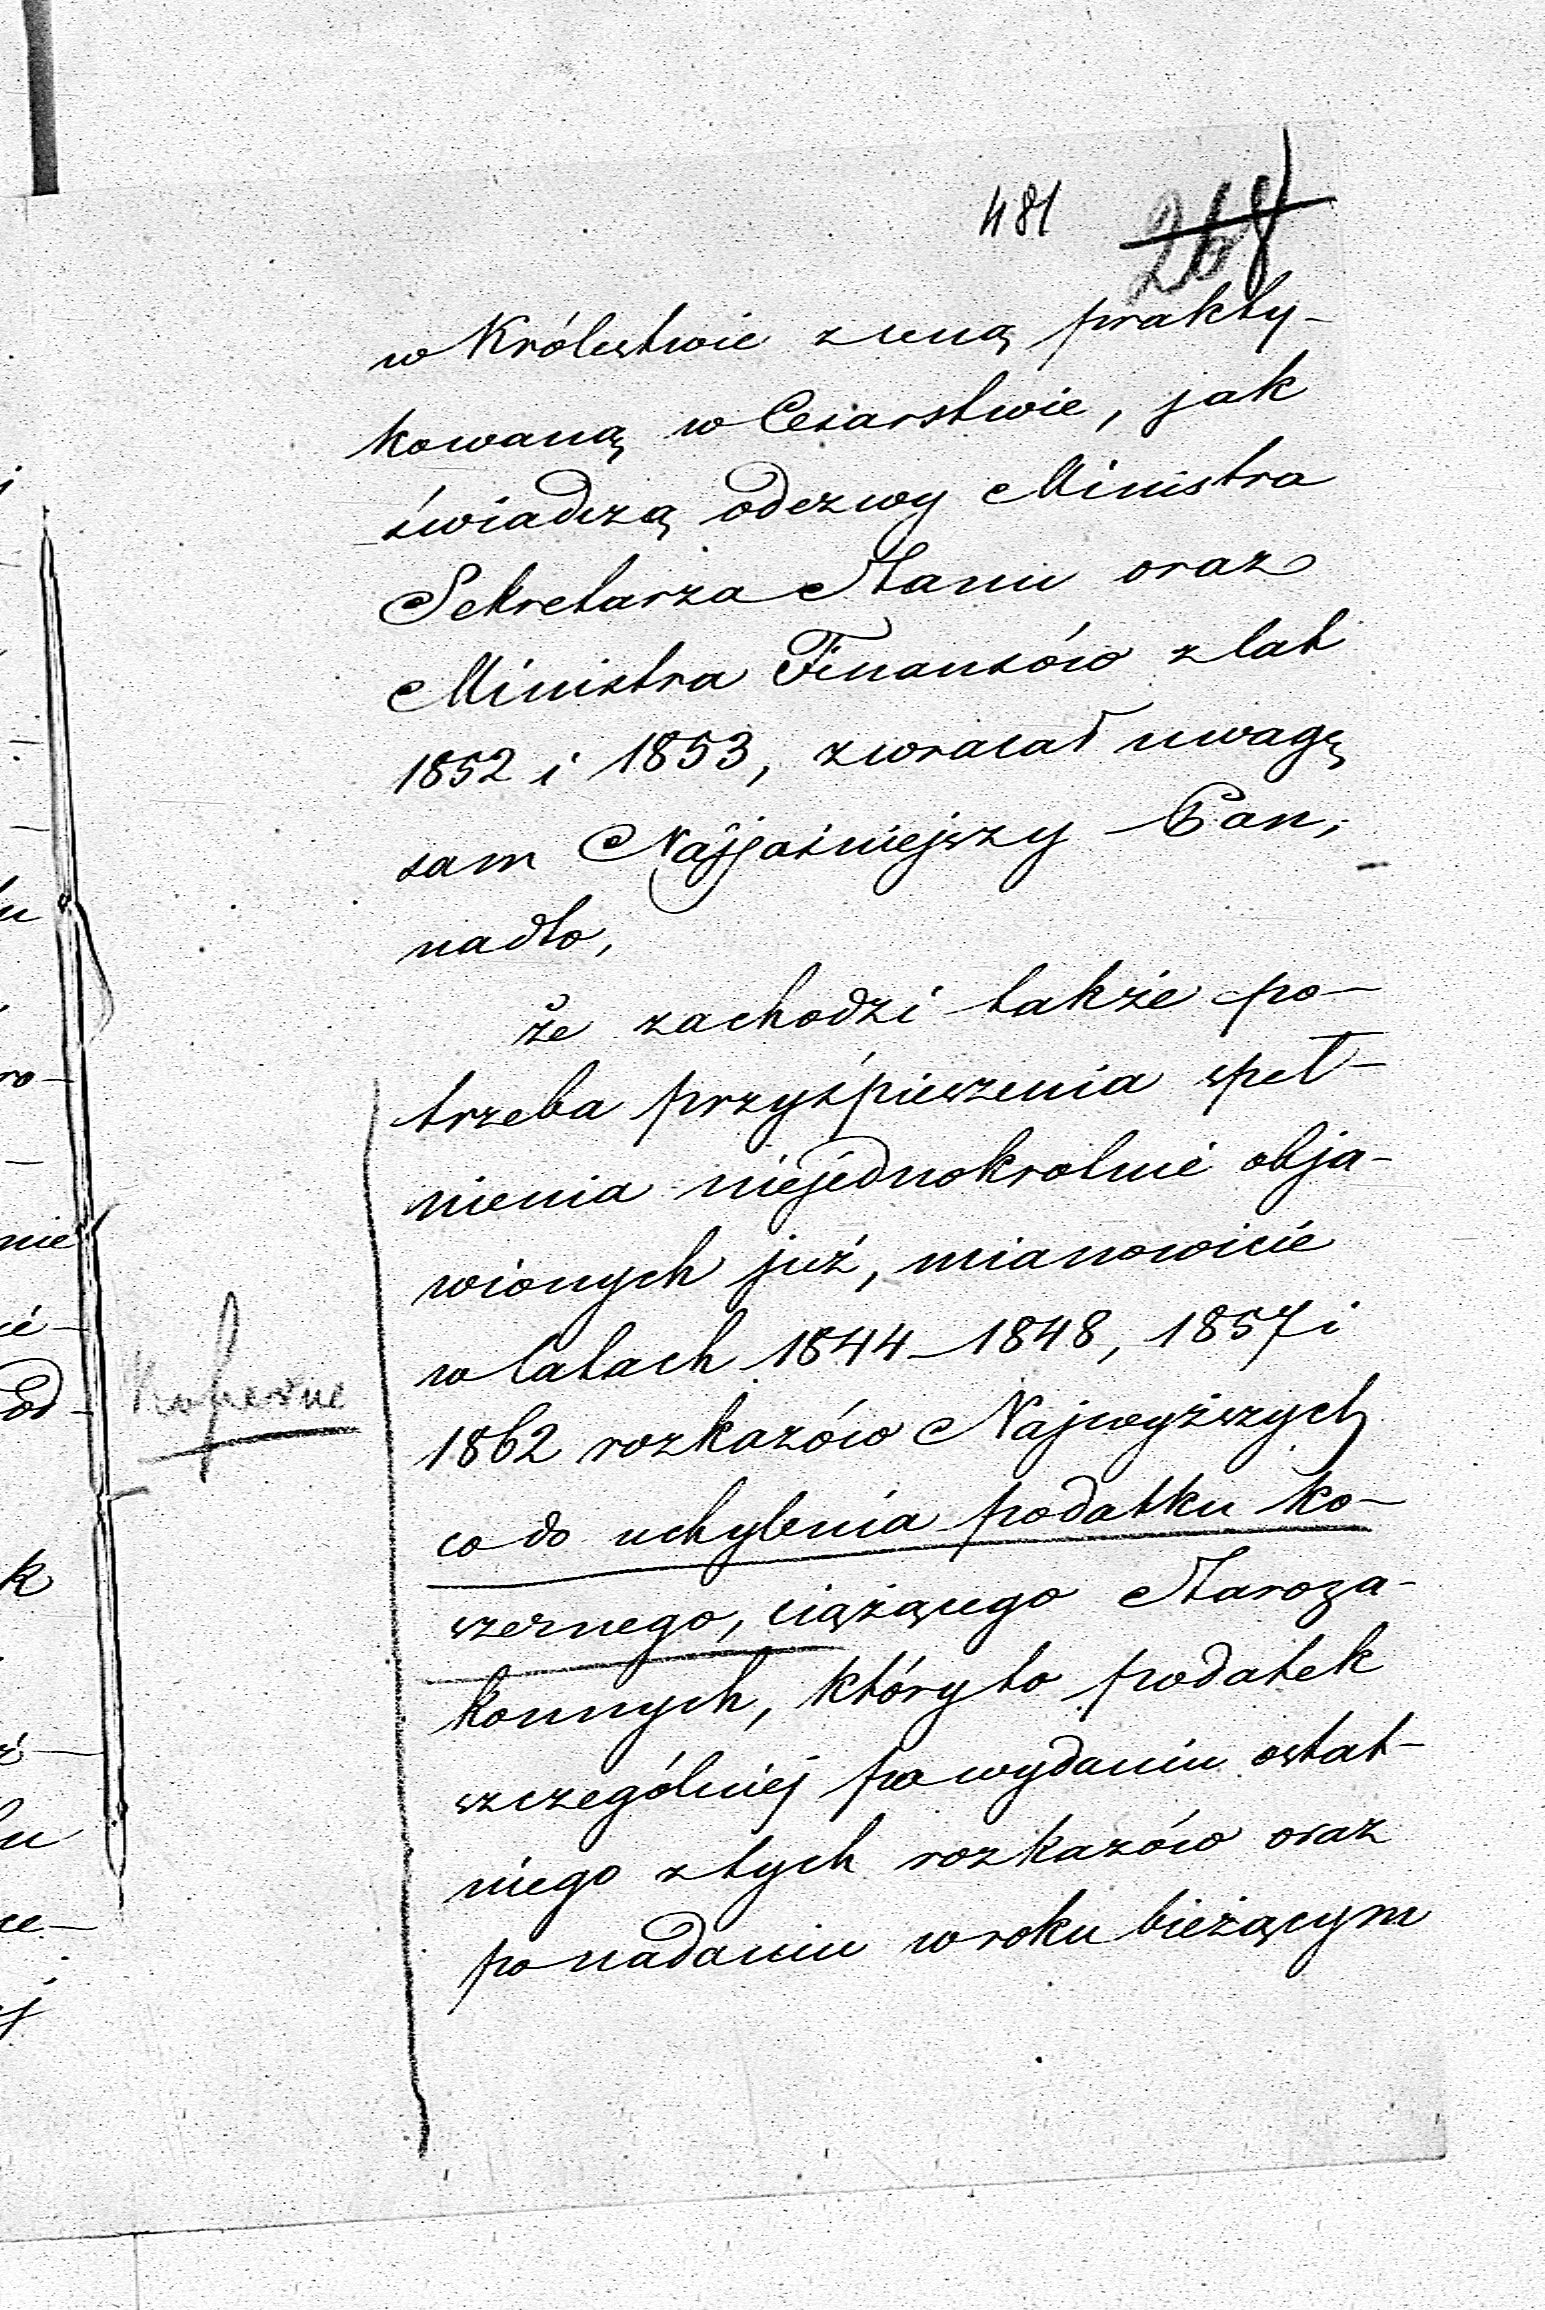 481 268
w Królestwie z ceną prakty-
kowaną w Cesarstwie, jak
świadczą odezwy Ministra
Sekretarza Stanu oraz
Ministra Finansów z lat
1852 i 1853, zwracał uwagę
sam Najjaśniejszy Pan;
nadto,
że zachodzi także po-
trzeba przyśpieszenia speł-
nienia niejednokrotnie obja-
wionych już, mianowicie
w latach 1844–1848, 1857 i
1862 rozkazów Najwyższych
co do uchylenia podatku ko-
szernego, ciążącego Staroza-
konnych, który to podatek
szczególniej po wydaniu ostat-
niego z tych rozkazów oraz
po nadaniu w roku bieżącym